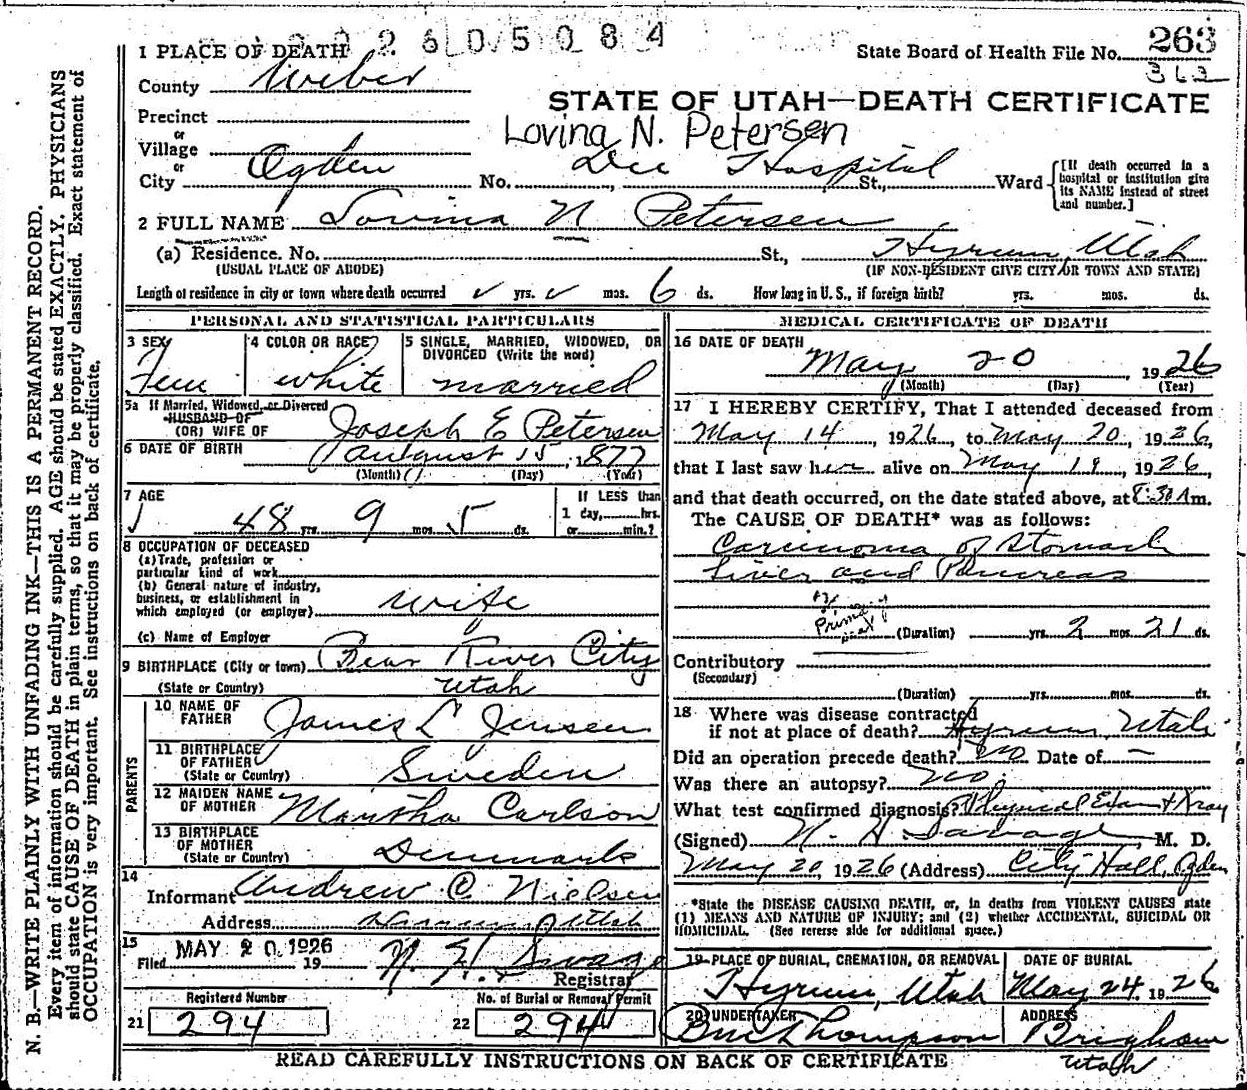 2605084
1 PLACE OF DEATH
State Board of Health File No. 263
362
County Weber
STATE OF UTAH—DEATH CERTIFICATE
Precinct
or
Village
Lovina N. Petersen
or
City Ogden No. Dee Hospital St., Ward
[If death occurred in a hospital or institution give its NAME instead of street and number.]
2 FULL NAME Lovina N Petersen
(a) Residence. No. St., Hyrum, Utah
(USUAL PLACE OF ABODE) (IF NON-RESIDENT GIVE CITY OR TOWN AND STATE)
Length of residence in city or town where death occurred yrs. mos. 6 ds. How long in U. S., if foreign birth? yrs. mos. ds.
PERSONAL AND STATISTICAL PARTICULARS
3 SEX Fem
4 COLOR OR RACE? white
5 SINGLE, MARRIED, WIDOWED, OR DIVORCED (Write the word) married
5a If Married, Widowed, or Divorced
HUSBAND OF
(OR) WIFE OF Joseph E Petersen
6 DATE OF BIRTH August 15, 1877
(Month) (Day) (Year)
7 AGE 48 yrs. 9 mos. 5 ds.
If LESS than
1 day, hrs.
or min.?
8 OCCUPATION OF DECEASED
(a) Trade, profession or
particular kind of work
(b) General nature of industry,
business, or establishment in
which employed (or employer) wife
(c) Name of Employer
9 BIRTHPLACE (City or town) Bear River City
(State or Country) Utah
PARENTS
10 NAME OF FATHER James L Jensen
11 BIRTHPLACE OF FATHER (State or Country) Sweden
12 MAIDEN NAME OF MOTHER Martha Carlson
13 BIRTHPLACE OF MOTHER (State or Country) Denmark
14
Informant Andrew C. Nielsen
Address Hyrum Utah
15
Filed MAY 20 1926 19 N. H. Savage
Registrar
Registered Number
21 294
No. of Burial or Removal Permit
22 294
MEDICAL CERTIFICATE OF DEATH
16 DATE OF DEATH
May 20 1926
(Month) (Day) (Year)
17 I HEREBY CERTIFY, That I attended deceased from
May 14, 1926, to May 20, 1926,
that I last saw her alive on May 19, 1926,
and that death occurred, on the date stated above, at 8:30 Am.
The CAUSE OF DEATH* was as follows:
Carcinoma of Stomach
Liver and Pancreas
Primary
(Duration) yrs. 2 mos. 21 ds.
Contributory
(Secondary)
(Duration) yrs. mos. ds.
18 Where was disease contracted
if not at place of death? Hyrum, Utah
Did an operation precede death? no Date of —
Was there an autopsy? no
What test confirmed diagnosis? Physical Exam + Xray
(Signed) N. H. Savage, M. D.
May 20, 1926 (Address) City Hall, Ogden
*State the DISEASE CAUSING DEATH, or, in deaths from VIOLENT CAUSES state
(1) MEANS AND NATURE OF INJURY; and (2) whether ACCIDENTAL, SUICIDAL OR
HOMICIDAL. (See reverse side for additional space.)
19 PLACE OF BURIAL, CREMATION, OR REMOVAL
Hyrum, Utah
DATE OF BURIAL
May 24, 1926
20 UNDERTAKER
Thompson
ADDRESS
Brigham
Utah
READ CAREFULLY INSTRUCTIONS ON BACK OF CERTIFICATE
N. B.—WRITE PLAINLY WITH UNFADING INK—THIS IS A PERMANENT RECORD.
Every item of information should be carefully supplied. AGE should be stated EXACTLY. PHYSICIANS
should state CAUSE OF DEATH in plain terms, so that it may be properly classified. Exact statement of
OCCUPATION is very important. See instructions on back of certificate.